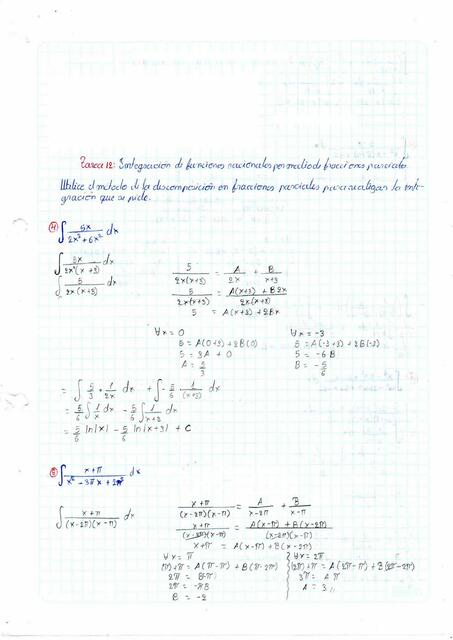 Tarea 12: Integración de funciones racionales por medio de fracciones parciales
Utilice el método de la descomposición en fracciones parciales para realizar la inte-
gración que se pide.
④ ∫ 5x / (2x³ + 6x²) dx
∫ 5x / (2x²(x+3)) dx
∫ 5 / (2x(x+3)) dx
5 / (2x(x+3)) = A / 2x + B / (x+3)
5 / (2x(x+3)) = (A(x+3) + B2x) / (2x(x+3))
5 = A(x+3) + 2Bx
∀x = 0
5 = A(0+3) + 2B(0)
5 = 3A + 0
A = 5/3
∀x = -3
5 = A(-3+3) + 2B(-3)
5 = -6B
B = -5/6
= ∫ 5/3 · 1/2x dx + ∫ -5/6 · 1/(x+3) dx
= 5/6 ∫ 1/x dx - 5/6 ∫ 1/(x+3) dx
= 5/6 ln|x| - 5/6 ln|x+3| + C
⑤ ∫ (x+π) / (x² - 3πx + 2π²) dx
∫ (x+π) / ((x-2π)(x-π)) dx
(x+π) / ((x-2π)(x-π)) = A / (x-2π) + B / (x-π)
(x+π) / ((x-2π)(x-π)) = (A(x-π) + B(x-2π)) / ((x-2π)(x-π))
x+π = A(x-π) + B(x-2π)
∀x = π
(π)+π = A(π-π) + B(π-2π)
2π = B(-π)
2π = -πB
B = -2
∀x = 2π
(2π)+π = A(2π-π) + B(2π-2π)
3π = Aπ
A = 3